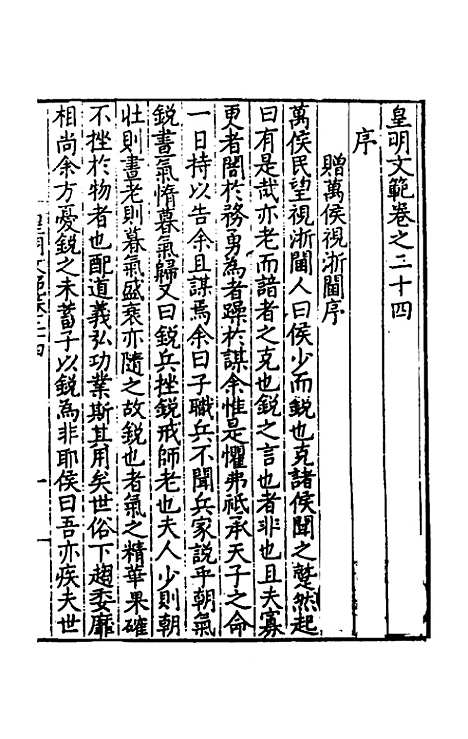 皇明文範卷之二十四
序
贈萬侯視浙閫序
萬侯民望視浙閫人曰侯少而銳也克諸侯聞之蹵然起
曰有是哉亦老而諳者之克也銳之言也者非也且夫寡
更者闇於務勇為者躁於謀余惟是懼弗祇承天子之命
一日持以告余且謀焉余曰子職兵不聞兵家說乎朝氣
銳晝氣惰暮氣歸又曰銳兵挫銳戒師老也夫人少則朝
壯則晝老則暮氣盛衰亦隨之故銳也者氣之精華果確
不挫於物者也配道義弘功業斯其用矣世俗下趨委靡
相尚余方憂銳之未蓄子以銳為非耶侯曰吾亦疾夫世
皇明文範卷二十四
一